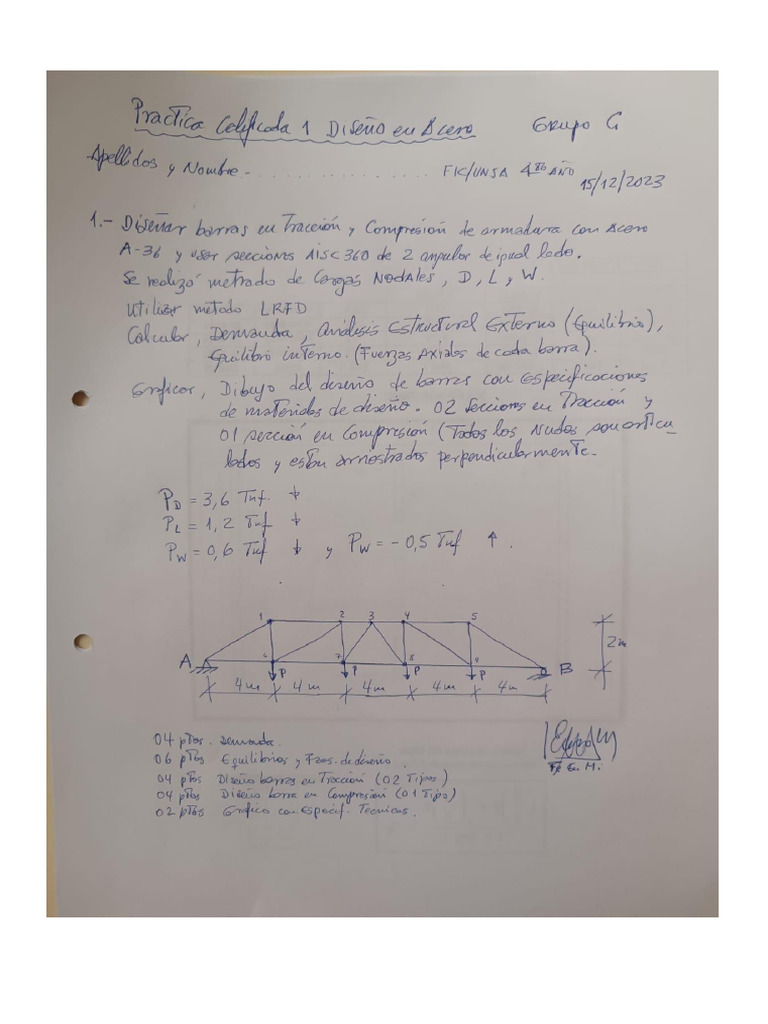 Practica Calificada 1 Diseño en Acero Grupo G
Apellidos y Nombre.- . . . . . . . . . . . . . . . . FIC/UNSA 4to AÑO
15/12/2023
1.- Diseñar barras en Tracción y Compresión de armadura con Acero
A-36 y usar secciones AISC 360 de 2 angulos de igual lado.
Se realizó metrado de Cargas NODALES, D, L, W.
Utilizar metodo LRFD
Calcular, Demanda, Análisis Estructural Externo (Equilibrio),
Equilibrio interno. (Fuerzas Axiales de cada barra).
Graficos, Dibujo del diseño de barras con Especificaciones
de materiales de diseño. 02 secciones en Tracción y
01 sección en Compresión (Todos los Nudos son articu_
lados y estan arriostrados perpendicularmente.
PD = 3,6 Tnf. ↓
PL = 1,2 Tnf ↓
PW = 0,6 Tnf ↓ y PW = - 0,5 Tnf ↑.
1 2 3 4 5
2m
A 6 7 8 9 B
P P P P
4m 4m 4m 4m 4m
04 ptos. Demanda.
06 ptos Equilibrios y Fzas. de diseño.
04 ptos Diseño barras en Tracción (02 Tipos)
04 ptos Diseño barra en Compresión (01 Tipo)
02 ptos Grafico con Especif. Tecnicas.
E. G. M.